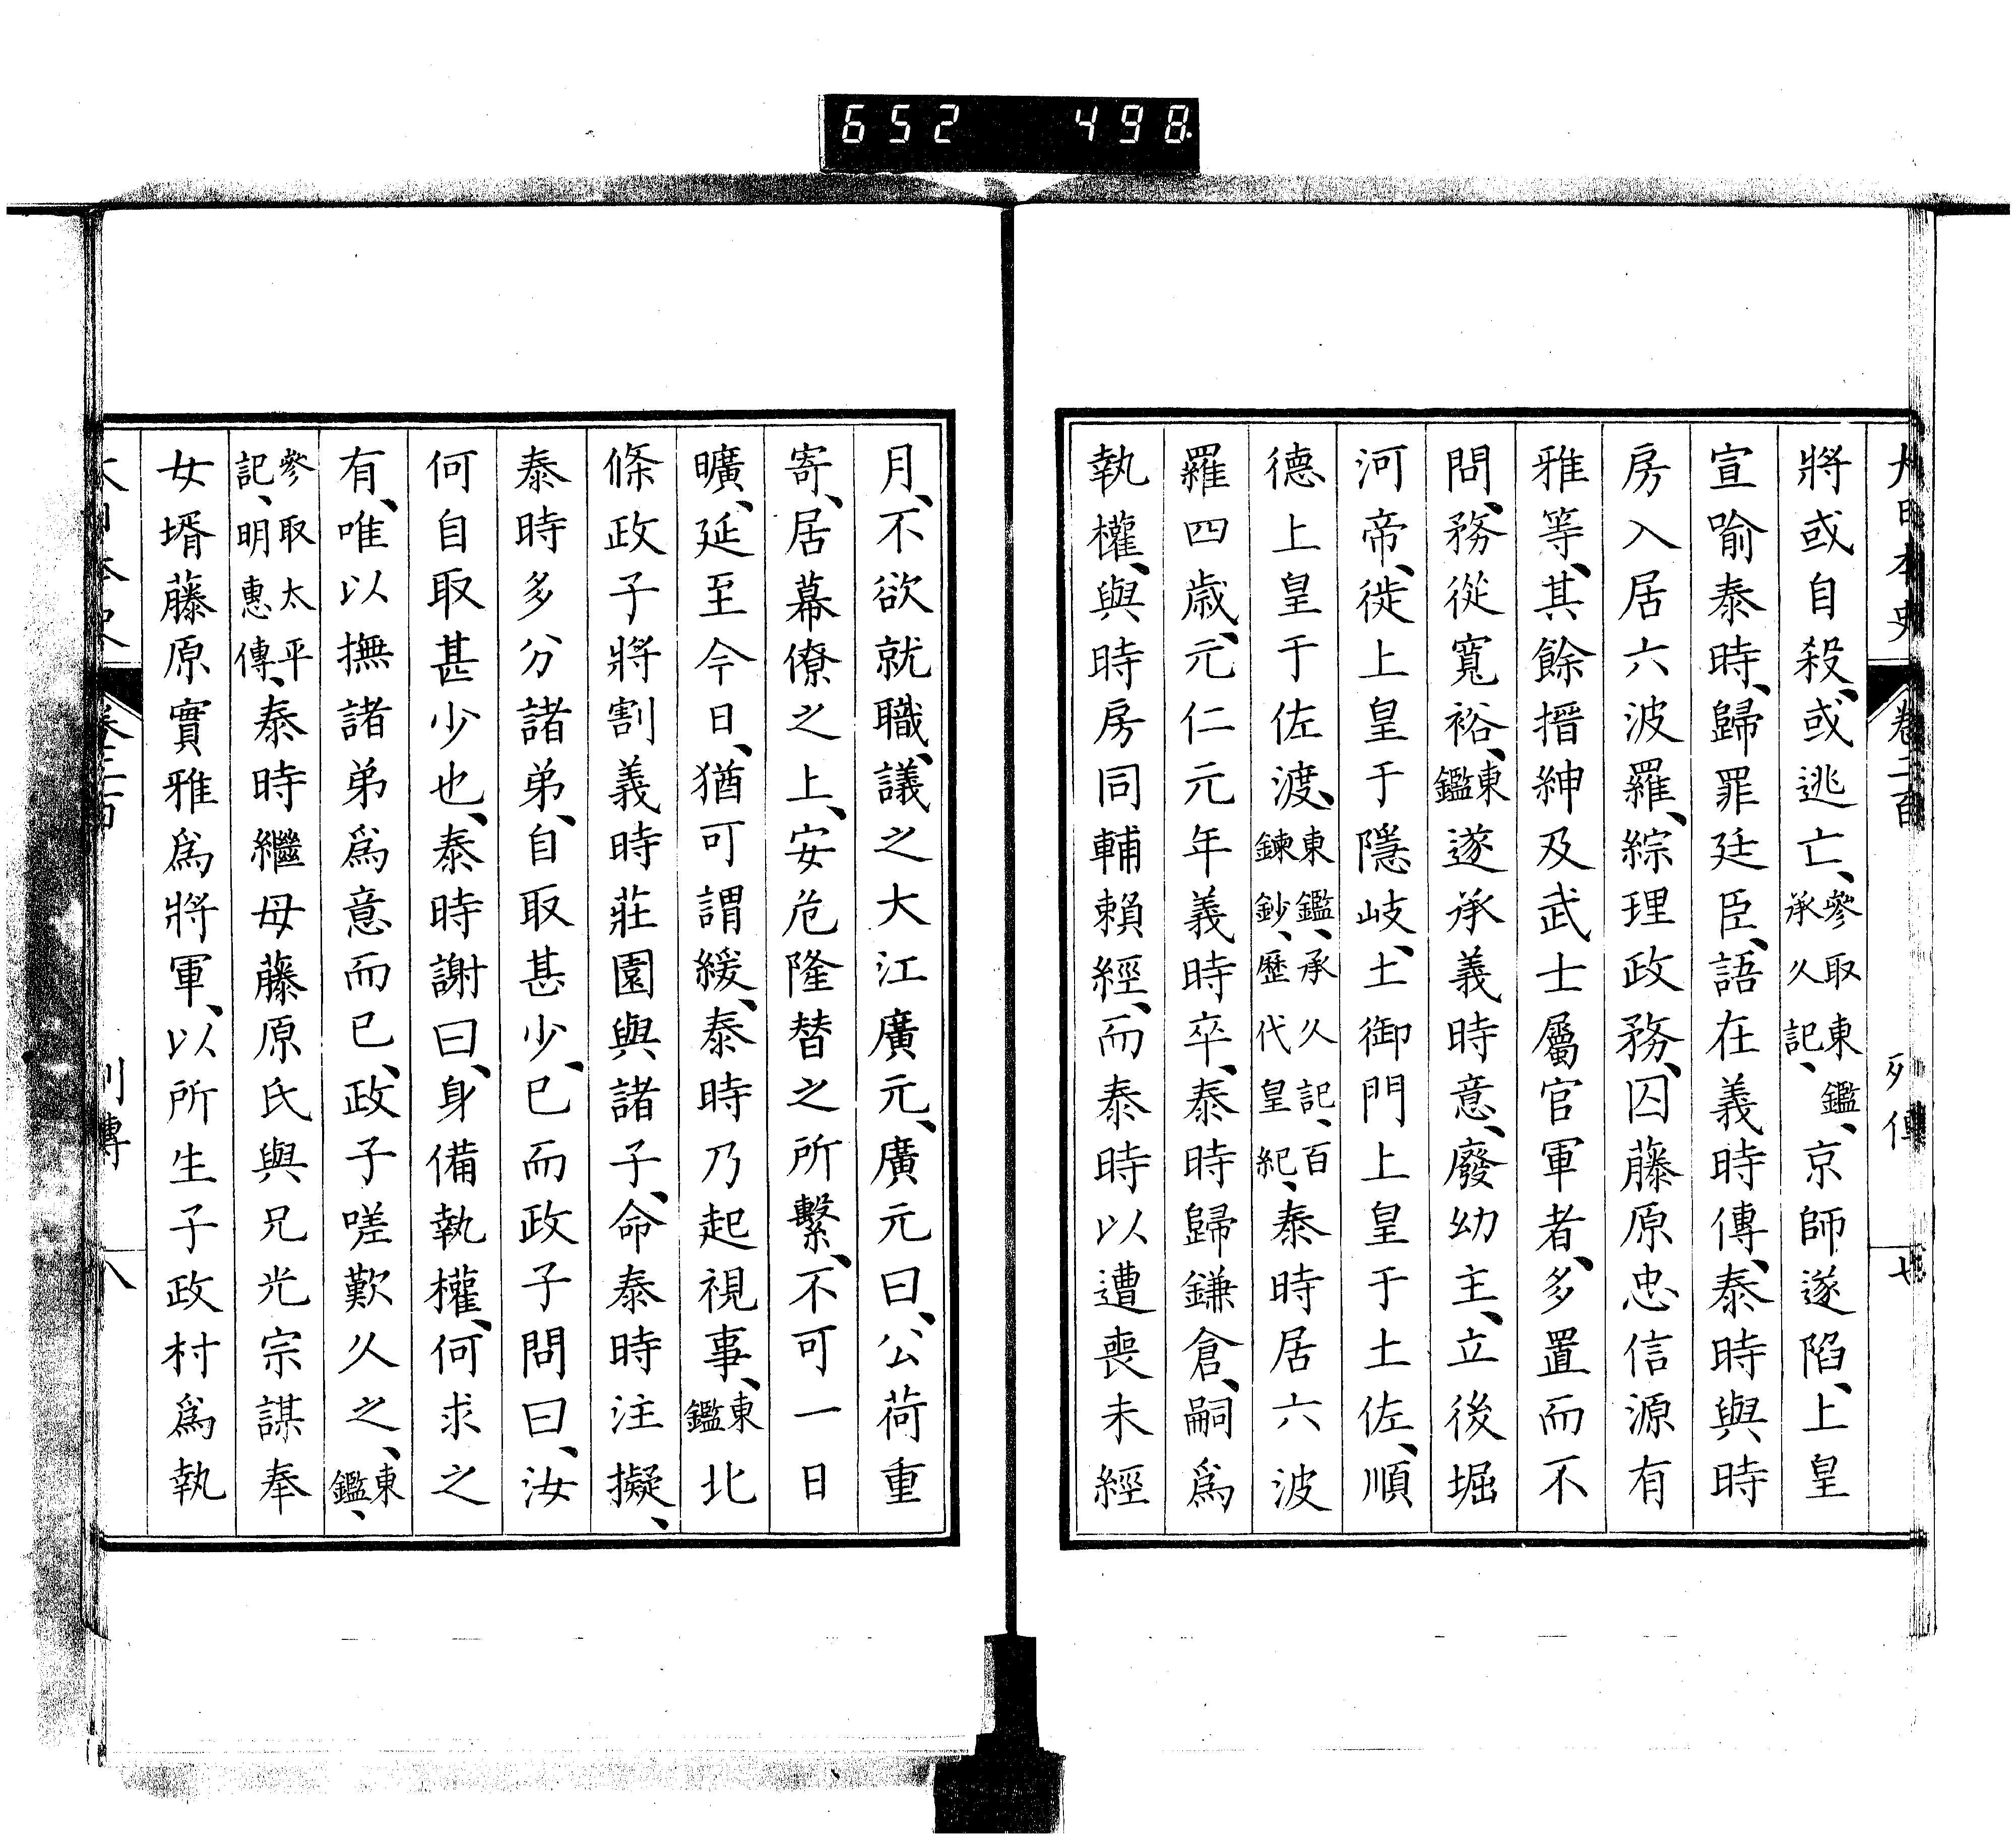 652 498
大日本史 卷二百 列傳 七
將或自殺、或逃亡、參取東鑑、承久記、京師遂陷、上皇
宣喻泰時、歸罪廷臣、語在義時傳、泰時與時
房入居六波羅、綜理政務、囚藤原忠信源有
雅等、其餘搢紳及武士屬官軍者、多置而不
問、務從寬裕、東鑑遂承義時意、廢幼主、立後堀
河帝、徙上皇于隱岐、土御門上皇于土佐、順
德上皇于佐渡、東鑑、承久記、百鍊鈔、歷代皇紀、泰時居六波
羅四歳、元仁元年義時卒、泰時歸鎌倉、嗣爲
執權、與時房同輔賴經、而泰時以遭喪未經
月、不欲就職、議之大江廣元、廣元曰、公荷重
寄、居幕僚之上、安危隆替之所繫、不可一日
曠、延至今日、猶可謂緩、泰時乃起視事、東鑑北
條政子將割義時莊園與諸子、命泰時注擬、
泰時多分諸弟、自取甚少、已而政子問曰、汝
何自取甚少也、泰時謝曰、身備執權、何求之
有、唯以撫諸弟爲意而已、政子嗟歎久之、東鑑、
參取太平記、明惠傳、泰時繼母藤原氏與兄光宗謀奉
女壻藤原實雅爲將軍、以所生子政村爲執
大日本史 卷二百 列傳 八